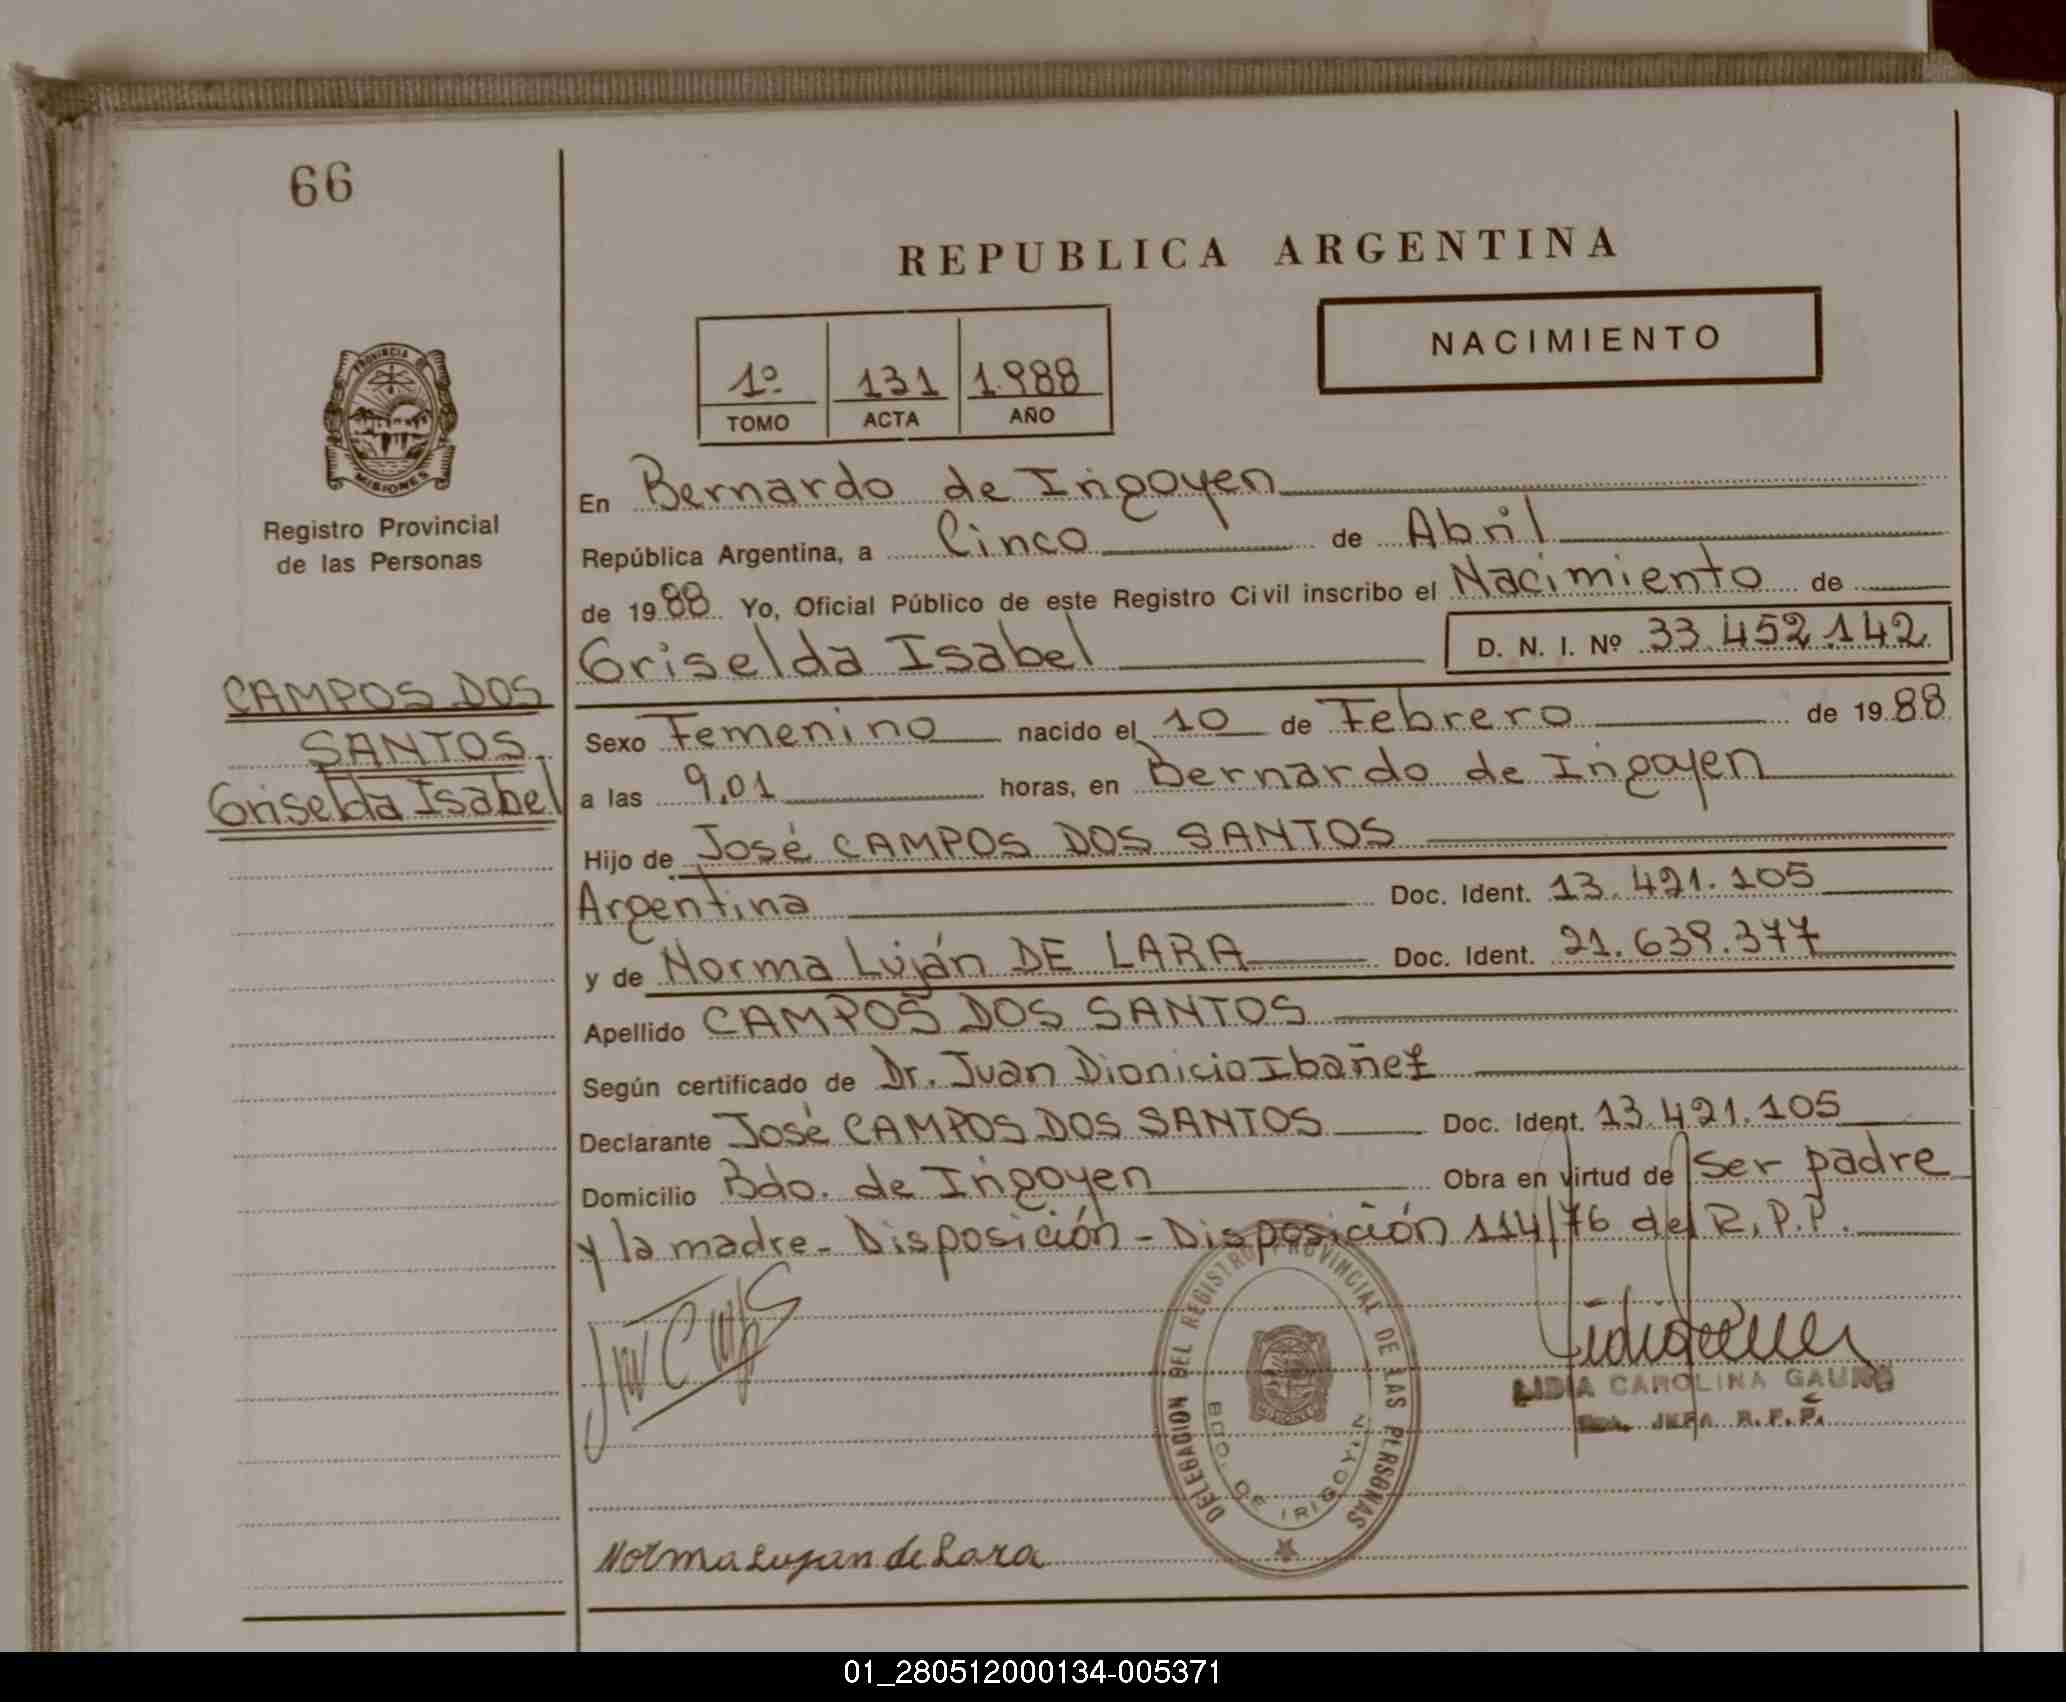 66
REPUBLICA ARGENTINA
NACIMIENTO
1º 131 1.988
TOMO ACTA AÑO
PROVINCIA DE
MISIONES
Registro Provincial
de las Personas
CAMPOS DOS
SANTOS
Griselda Isabel
En Bernardo de Irigoyen
República Argentina, a Cinco de Abril
de 1988 Yo, Oficial Público de este Registro Civil inscribo el Nacimiento de
Griselda Isabel D. N. I. Nº 33.452.142
Sexo Femenino nacido el 10 de Febrero de 1988
a las 9,01 horas, en Bernardo de Irigoyen
Hijo de José CAMPOS DOS SANTOS
Argentina Doc. Ident. 13.421.105
y de Norma Luján DE LARA Doc. Ident. 21.639.377
Apellido CAMPOS DOS SANTOS
Según certificado de Dr. Juan Dionicio Ibañez
Declarante José CAMPOS DOS SANTOS Doc. Ident. 13.421.105
Domicilio Bdo. de Irigoyen Obra en virtud de Ser padre
y la madre - Disposición - Disposición 114/76 del R.P.P.
DELEGACION DEL REGISTRO PROVINCIAL DE LAS PERSONAS
BDO. DE IRIGOYEN
LIDIA CAROLINA
JEFA R.P.P.
Norma Lujan de Lara
01_280512000134-005371